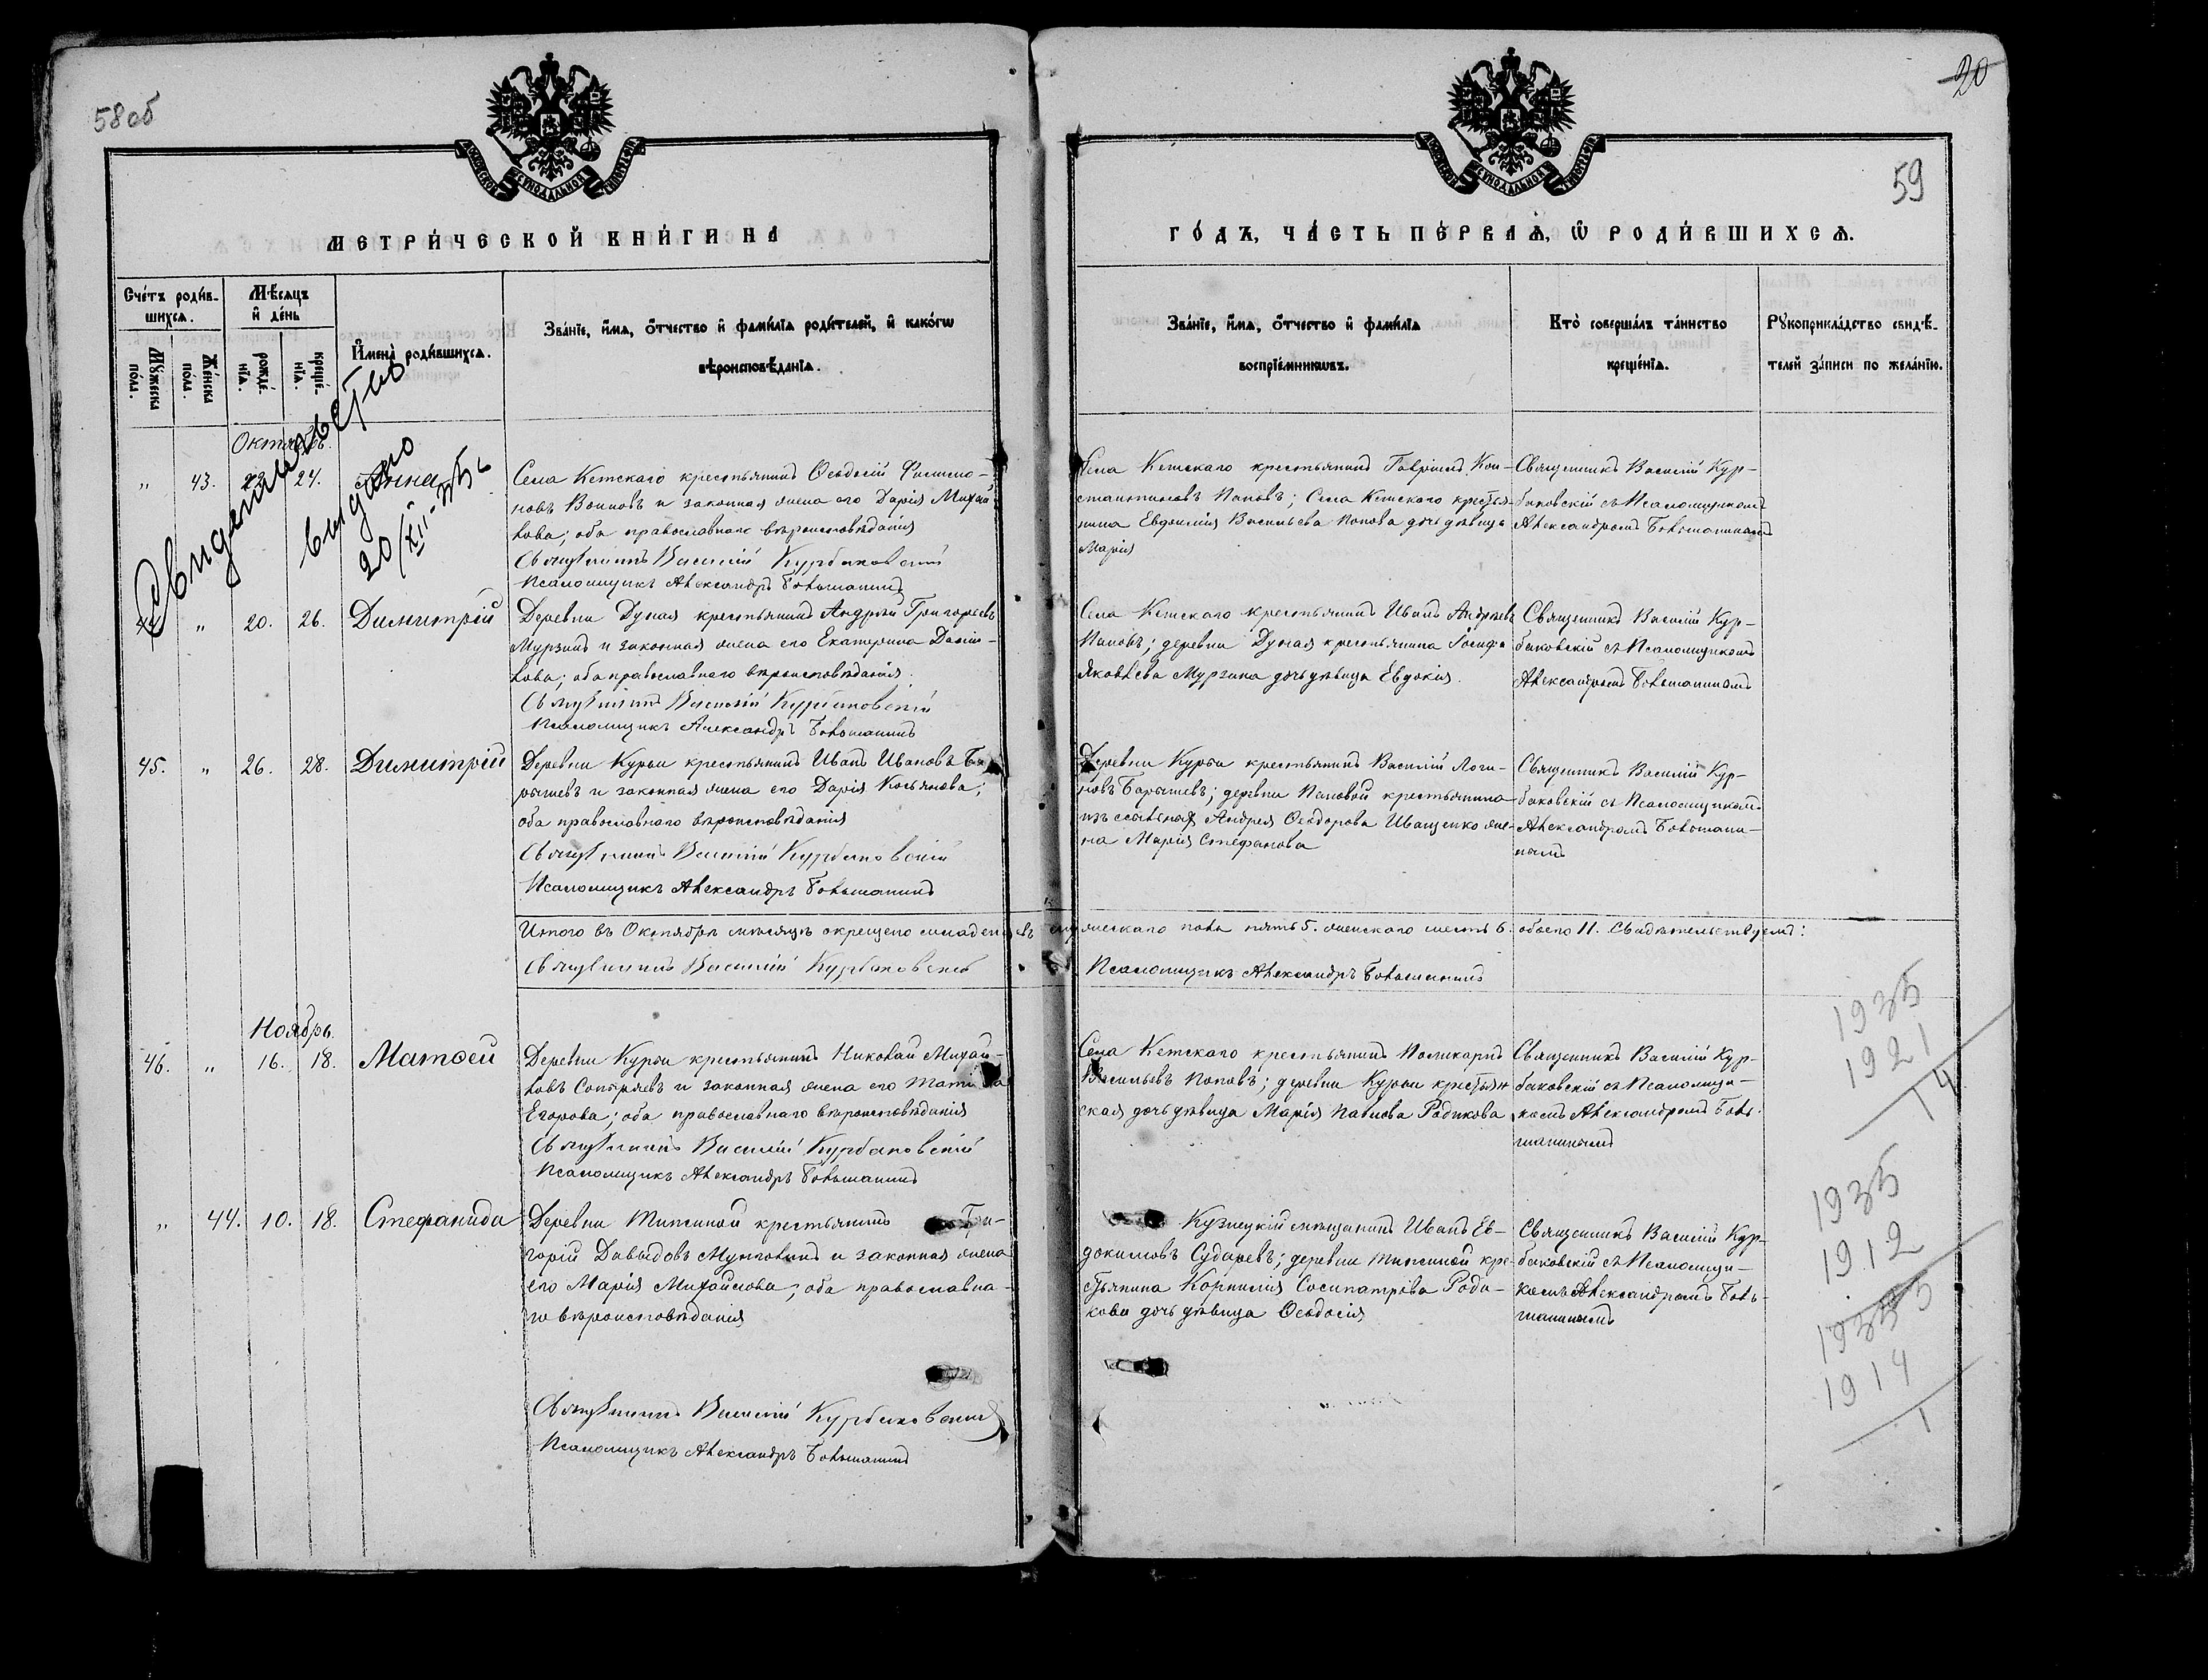 58 об
20
59
МЕТРИЧЕСКОЙ КНИГИ НА
ГОДЪ, ЧАСТЬ ПЕРВАЯ, Ѡ РОДИВШИХСЯ.
Счетъ родив-
шихся.
Мѣсяцъ
и день
Мужеска пола.
Женска пола.
рожденія.
крещенія.
Имена родившихся.
Званіе, имя, отчество и фамилія родителей, и какогѡ
вѣроисповѣданія.
Званіе, имя, отчество и фамилія
воспріемниковъ.
Кто совершалъ таинство
крещенія.
Рукоприкладство свидѣ-
телей записи по желанію.
Свидетельство
выдано
20/XII-35 г
Октябрь.
" 43. 23. 24. Анна
Села Кетскаго крестьянинъ Ѳеодосій Филимо-
новъ Воиновъ и законная жена его Дарія Михаи-
лова; оба православнаго вѣроисповѣданія
Священникъ Василій Курбаковскій
Псаломщикъ Александръ Бовшанинъ
Села Кетскаго крестьянинъ Гавріилъ Кон-
стантиновъ Поповъ; Села Кетскаго крестья-
нина Евдокима Васильева Попова дочь дѣвица
Марія
Священникъ Василій Кур-
баковскій съ Псаломщикомъ
Александромъ Бовшанинымъ
44. " 20. 26. Димитрій
Деревни Дуная крестьянинъ Андрей Григорьевъ
Мурзинъ и законная жена его Екатерина Дани-
лова; оба православнаго вѣроисповѣданія.
Священникъ Василій Курбаковскій
Псаломщикъ Александръ Бовшанинъ
Села Кетскаго крестьянинъ Иванъ Андреевъ
Поповъ; деревни Дуная крестьянина Іосифа
Яковлева Мурзина дочь дѣвица Евдокія.
Священникъ Василій Кур-
баковскій съ Псаломщикомъ
Александромъ Бовшанинымъ
45. " 26. 28. Димитрій
Деревни Курьи крестьянинъ Иванъ Ивановъ Ба-
рышевъ и законная жена его Дарія Косьянова;
оба православнаго вѣроисповѣданія
Священникъ Василій Курбаковскій
Псаломщикъ Александръ Бовшанинъ
Деревни Курьи крестьянинъ Василій Логи-
новъ Барышевъ; деревни Пановой крестьянина
изъ ссыльныхъ Андрея Ѳеодорова Иващенко же-
на Марія Стефанова
Священникъ Василій Кур-
баковскій съ Псаломщикомъ
Александромъ Бовшани-
нымъ
Итого въ Октябрѣ мѣсяцѣ окрещено младенцевъ мужескаго пола пять 5. женскаго шесть 6. обоего 11. Свидѣтельствуемъ:
Священникъ Василій Курбаковскій
Псаломщикъ Александръ Бовшанинъ
Ноябрь.
46. " 16. 18. Матѳей
Деревни Курьи крестьянинъ Николай Михаи-
ловъ и законная жена его
Егорова; оба православнаго вѣроисповѣданія
Священникъ Василій Курбаковскій
Псаломщикъ Александръ Бовшанинъ
Села Кетскаго крестьянинъ Поликарпъ
Васильевъ Поповъ; деревни Курьи крестьян-
ская дочь дѣвица Марія Павлова Родикова
Священникъ Василій Кур-
баковскій съ Псаломщи-
комъ Александромъ Бов-
шанинымъ
" 44. 10. 18. Стефанида
Деревни Типсиной крестьянинъ Гри-
горій Давыдовъ Мунговинъ и законная жена
его Марія Михайлова; оба православна-
го вѣроисповѣданія
Священникъ Василій Курбаковскій
Псаломщикъ Александръ Бовшанинъ
Кузнецкій мѣщанинъ Иванъ Ев-
докимовъ Сударевъ; деревни Типсиной кре-
стьянина Корнилія Сосипатрова Роди-
кова дочь дѣвица Ѳеодосія
Священникъ Василій Кур-
баковскій съ Псаломщи-
комъ Александромъ Бов-
шанинымъ
1935
1921
14
1935
1912
1935
1914
1